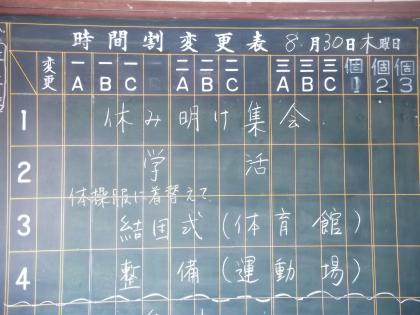 時間割変更表 8月30日木曜日
変更 一A 一B 一C 二A 二B 二C 三A 三B 三C 個1 個2 個3
1 休み明け集会
2 学活
体操服に着替えて
3 結団式(体育館)
4 整備(運動場)